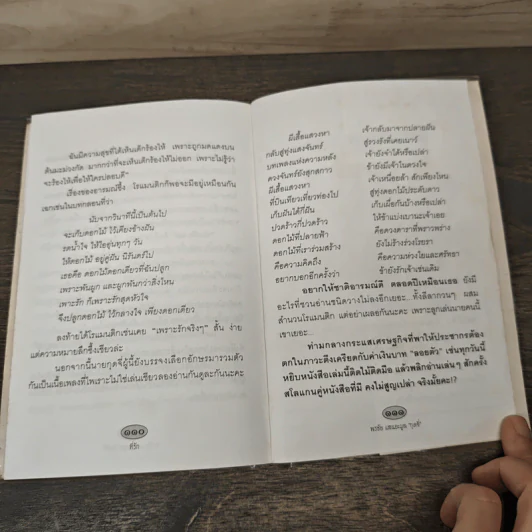 ฉันมีความสุขที่ได้เห็นเด็กร้องไห้ เพราะถูกมดแดงบน
ต้นมะม่วงกัด มากกว่าที่จะเห็นเด็กร้องไห้ไม่ออก เพราะไม่รู้ว่า
จะร้องไห้เพื่อให้ใครปลอบดี"
เรื่องของอารมณ์ซึ้ง โรแมนติกก็พอจะมีอยู่เหมือนกัน
เฉกเช่นในบทกลอนที่ว่า
นับจากวินาทีนี้เป็นต้นไป
จะเก็บดอกไม้ ไว้เคียงข้างฉัน
รดน้ำใจ ให้ไออุ่นทุกๆ วัน
ให้ดอกไม้ อยู่คู่ฝัน นิรันดร์ไป
เธอคือ ดอกไม้ดอกเดียวที่ฉันปลูก
เพราะพันผูก และผูกพันกว่าสิ่งไหน
เพาะรัก ก็เพราะรักสุดหัวใจ
จึงปลูกดอกไม้ ไว้กลางใจ เพียงดอกเดียว
ลงท้ายได้โรแมนติกเช่นเคย "เพราะรักจริงๆ" สั้น ง่าย
แต่ความหมายลึกซึ้งเชียวล่ะ
นอกจากนี้นายกุดจี่ผู้นี้ยังบรรจงเลือกอักษรมารวมตัว
กันเป็นเนื้อเพลงที่ไพเราะไม่ใช่เล่นเชียวลองอ่านกันดูละกันนะคะ
ที่รัก
มีเสื้อแสวงหา เจ้ากลับมาจากปลายฝัน
กลับสู่ทุ่งแสงจันทร์ สู่รวงรังที่เคยเนาว์
บทเพลงแห่งความหลัง เจ้ายังจำได้หรือเปล่า
ดวงจันทร์ยังสุกสกาว ข้ายังมีเจ้าในดวงใจ
มีเสื้อแสวงหา เจ้าเหนื่อยล้า สักเพียงไหน
ที่บินเทียวเที่ยวท่องไป สู่ทุ่งดอกไม้ประดับดาว
เก็บฝันได้กี่ฝัน เก็บเผื่อกันบ้างหรือเปล่า
ปวดร้าวกี่ปวดร้าว ให้ข้าแบ่งเบานะเจ้าเอย
ดอกไม้ที่ปลายฟ้า คือดวงดาราที่พราวพร่าง
ดอกไม้ที่เราร่วมสร้าง ยังไม่ร้างร่วงโรยรา
คือความคิดถึง คือความห่วงใยและศรัทธา
อยากบอกอีกครั้งว่า ข้ายังรักเจ้าเช่นเดิม
อยากให้ชาติอารมณ์ดี ตลอดปีเหมือนเธอ ยังมี
อะไรที่ชวนอ่านชนิดวางไม่ลงอีกเยอะ... ทั้งลีลากวนๆ ผสม
สำนวนโรแมนติก แต่อย่าเผลอกันนะคะ เพราะลูกเล่นนายคนนี้
เขาเยอะ...
ท่ามกลางกระแสเศรษฐกิจที่พาให้ประชากรต้อง
ตกในภาวะตึงเครียดกับค่าเงินบาท "ลอยตัว" เช่นทุกวันนี้
หยิบหนังสือเล่มนี้ติดไม้ติดมือ แล้วพลิกอ่านเล่นๆ สักครั้ง
สโลแกนคู่หนังสือที่มี คงไม่สูญเปล่า จริงมั้ยคะ!?